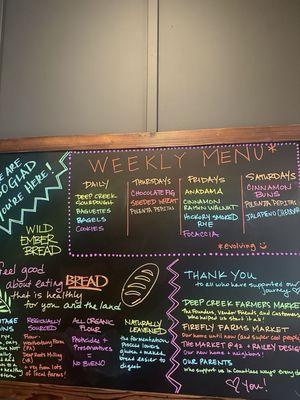 WEEKLY MENU*
ARE
SO GLAD
YOU'RE HERE!
WILD
EMBER
BREAD
DAILY
DEEP CREEK
SOURDOUGH
BAGUETTES
BAGELS
COOKIES
THURSDAYS
CHOCOLATE FIG
SEEDED WHEAT
POLENTA PEPITAS
FRIDAYS
ANADAMA
CINNAMON
RAISIN WALNUT
HICKORY SMOKED
RYE
FOCACCIA
SATURDAYS
CINNAMON
BUNS
POLENTA PEPITAS
JALAPEÑO CHEDDAR
*evolving
Feel good
about eating BREAD
that is healthy
for you and the land
REGIONALLY
SOURCED
Flour
(PA)
(VA)
of local farms!
ALL ORGANIC
FLOUR
Pesticides +
Preservatives
=
NO BUENO
NATURALLY
LEAVENED
the fermentation
process lowers
gluten + makes
bread easier to
digest
THANK YOU
to all who have supported our
journey
DEEP CREEK FARMERS MARKET
the Founders, Vendor Friends, and Customers
who helped us start it all!
FIREFLY FARMS MARKET
Our home until now (and super cool people
THE MARKET @ 42 + RAILEY DESIGN
Our new home + neighbors!
OUR PARENTS
who support us in countless ways every
YOU!